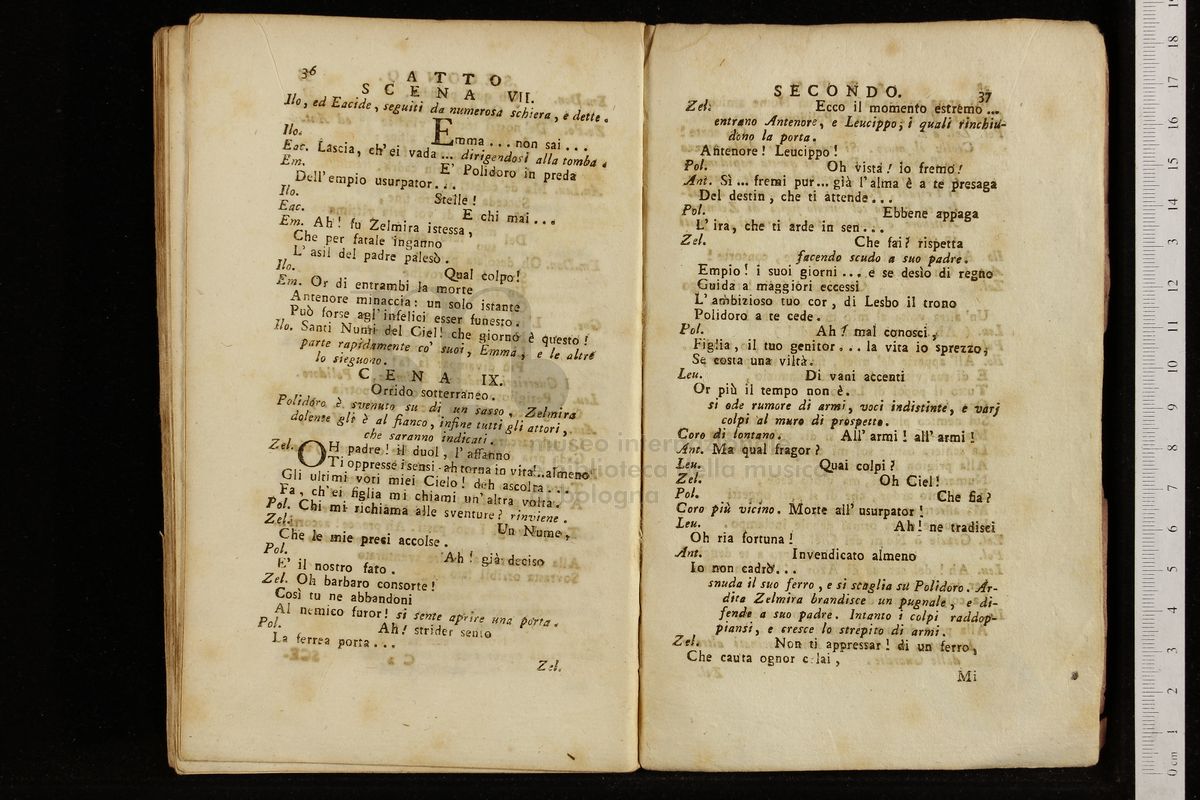 36
ATTO
SCENA VII.
Ilo, ed Eacide, seguiti da numerosa schiera, e dette.
Ilo. Emma... non sai...
Eac. Lascia, ch'ei vada... dirigendosi alla tomba.
Em. E' Polidoro in preda
Dell'empio usurpator...
Ilo. Stelle!
Eac. E chi mai...
Em. Ah! fu Zelmira istessa,
Che per fatale inganno
L' asil del padre palesò.
Ilo. Qual colpo!
Em. Or di entrambi la morte
Antenore minaccia: un solo istante
Può forse agl'infelici esser funesto.
Ilo. Santi Numi del Ciel! che giorno è questo!
parte rapidamente co' suoi, Emma, e le altre
lo sieguono.
CENA IX.
Orrido sotterraneo.
Polidoro è svenuto su di un sasso, Zelmira
dolente gli è al fianco, infine tutti gli attori,
che saranno indicati.
Zel. OH padre! il duol, l'affanno
Ti oppresse i sensi - ah torna in vita!..almeno
Gli ultimi voti miei Cielo! deh ascolta...
Fa, ch'ei figlia mi chiami un'altra volta.
Pol. Chi mi richiama alle sventure? rinviene.
Zel. Un Nume,
Che le mie preci accolse.
Pol. Ah! già deciso
E' il nostro fato.
Zel. Oh barbaro consorte!
Così tu ne abbandoni
Al nemico furor! si sente aprire una porta.
Pol. Ah! strider sento
La ferrea porta...
Zel.
SECONDO.
37
Zel. Ecco il momento estremo...
entrano Antenore, e Leucippo, i quali rinchiu-
dono la porta.
Antenore! Leucippo!
Pol. Oh vista! io fremo!
Ant. Sì... fremi pur... già l'alma è a te presaga
Del destin, che ti attende...
Pol. Ebbene appaga
L'ira, che ti arde in sen...
Zel. Che fai? rispetta
facendo scudo a suo padre.
Empio! i suoi giorni... e se desio di regno
Guida a maggiori eccessi
L'ambizioso tuo cor, di Lesbo il trono
Polidoro a te cede.
Pol. Ah! mal conosci,
Figlia, il tuo genitor... la vita io sprezzo,
Se costa una viltà.
Leu. Di vani accenti
Or più il tempo non è.
si ode rumore di armi, voci indistinte, e varj
colpi al muro di prospetto.
Coro di lontano. All'armi! all'armi!
Ant. Ma qual fragor?
Leu. Quai colpi?
Zel. Oh Ciel!
Pol. Che fia?
Coro più vicino. Morte all'usurpator!
Leu. Ah! ne tradisci
Oh ria fortuna!
Ant. Invendicato almeno
Io non cadrò...
snuda il suo ferro, e si scaglia su Polidoro. Ar-
dita Zelmira brandisce un pugnale, e di-
fende a suo padre. Intanto i colpi raddop-
piansi, e cresce lo strepito di armi.
Zel. Non ti appressar! di un ferro,
Che cauta ognor celai,
Mi
museo internazionale
e biblioteca della musica
di bologna